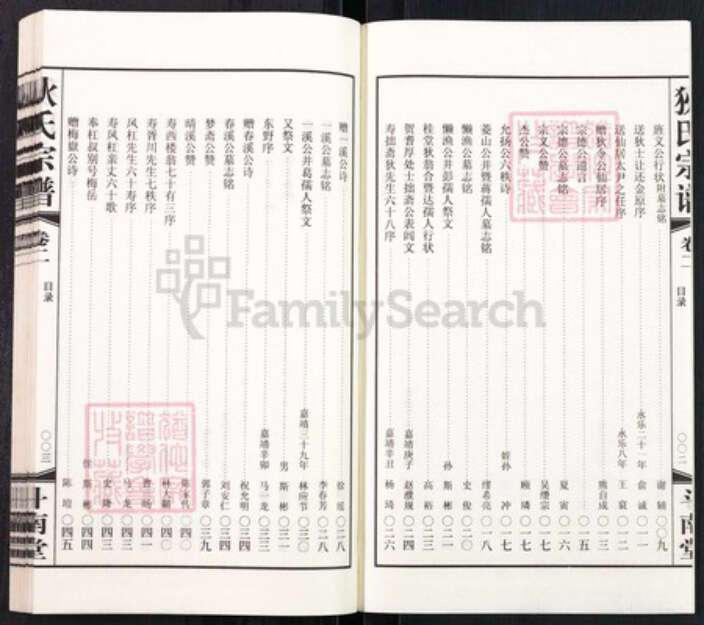 狄氏宗谱
卷二
目录
〇〇二
斗南堂
班义公行状附墓志铭 谢颖 〇〇九
送狄士让还金原序 永乐二十一年 俞诚 〇一一
送仙居太尹之任序 永乐八年 王襄 〇一二
赠狄令公仙居序 熊自成 〇一三
宗德公 〇一五
宗德公墓志铭 夏寅 〇一六
宗义公赞 吴 〇一七
杰公赞 顾璘 〇一七
允扬公六秩诗 侄孙 冲 〇一七
菱山公并暨蒋孺人墓志铭 缪希亮 〇一八
懒渔公墓志铭 史俊 〇二〇
懒渔公并彭孺人祭文 孙 斯彬 〇二一
桂堂狄翁合暨达孺人行状 高裕 〇二三
贺耆厚处士拙斋公表闾文 嘉靖庚子 赵濮规 〇二四
寿拙斋狄先生六十八序 嘉靖辛丑 杨琦 〇二六
狄氏宗谱
卷二
目录
〇〇三
斗南堂
赠一溪公诗 徐 〇二八
一溪公墓志铭 李春芳 〇二八
一溪公并葛孺人祭文 嘉靖三十九年 林应节 〇三〇
又祭文 男 斯彬 〇三二
东野序 嘉靖辛卯 马一龙 〇三三
赠春溪公诗 祝允明 〇三四
春溪公墓志铭 刘安仁 〇三四
梦斋公赞 郭子章 〇三九
晴溪公赞 陈 〇四〇
寿西楼翁七十有三序 林大 〇四〇
寿胥川先生七秩序 曹 〇四一
风杠先生六十寿序 马龙 〇四三
寿风杠亲丈六十歌 史 〇四三
奉杠叔别号梅岳 侄 斯彬 〇四四
赠梅嶽公诗 陈 〇四五
FamilySearch